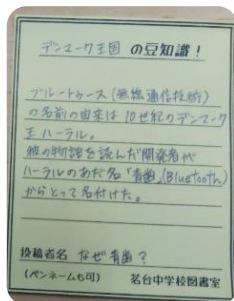 デンマーク王国 の豆知識！
ブルートゥース（無線通信技術）
の名前の由来は10世紀のデンマーク
王ハーラル。
彼の物語を読んだ開発者が
ハーラルのあだ名「青歯」(Bluetooth)
からとって名付けた。
投稿者名 なぜ青歯？
（ペンネームも可） 茗台中学校図書室